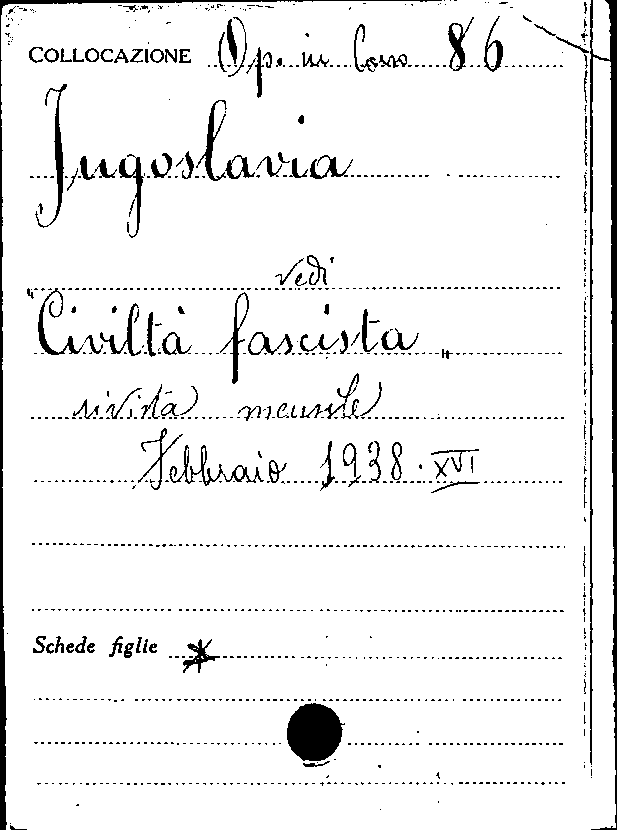 COLLOCAZIONE Op. in Corso 86
Jugoslavia
vedi
"Civiltà fascista„
rivista mensile
Febbraio 1938. XVI
Schede figlie *